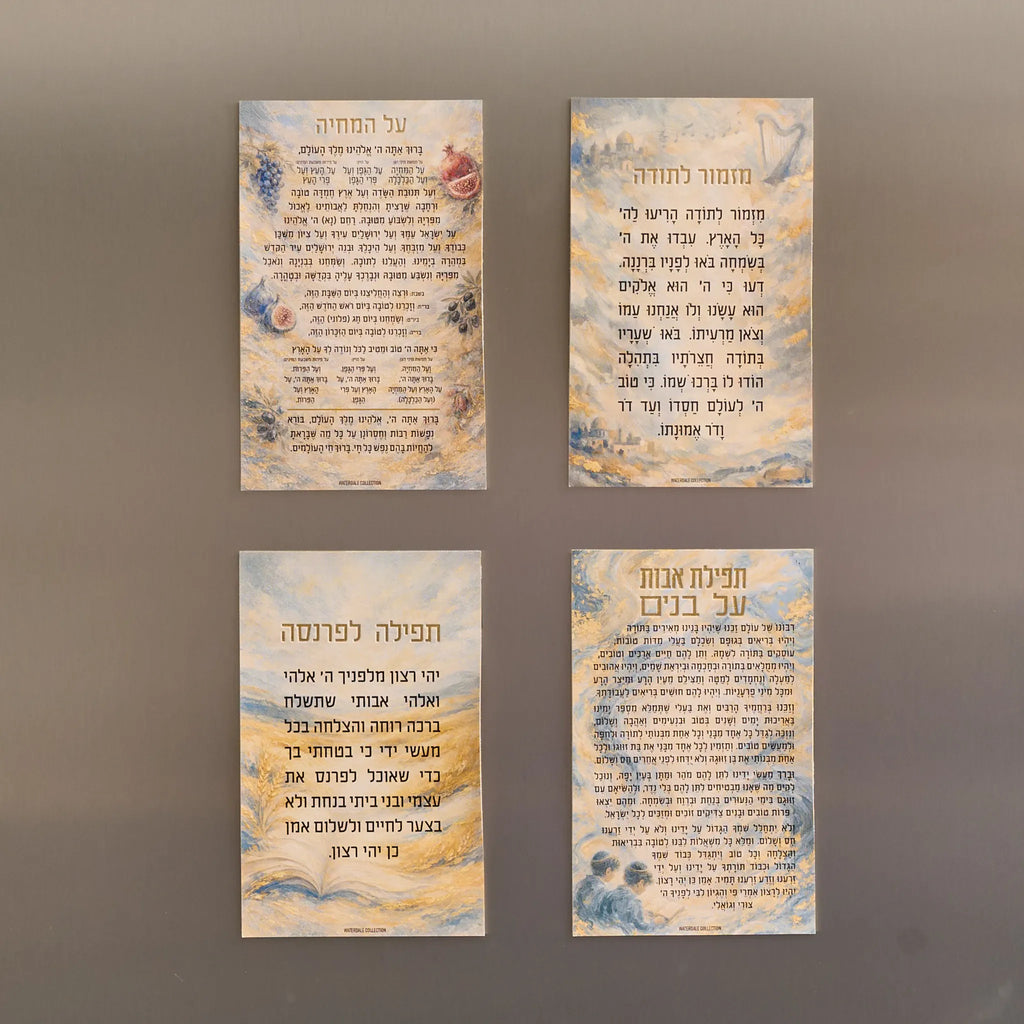 על המחיה
בָּרוּךְ אַתָּה ה' אֱלֹהֵינוּ מֶלֶךְ הָעוֹלָם,
על חמשת מיני דגן
על היין
על פירות משבעת המינים
עַל הַמִּחְיָה
עַל הַגֶּפֶן וְעַל
עַל הָעֵץ וְעַל
וְעַל הַכַּלְכָּלָה
פְּרִי הַגֶּפֶן
פְּרִי הָעֵץ
וְעַל תְּנוּבַת הַשָּׂדֶה וְעַל אֶרֶץ חֶמְדָּה טוֹבָה
וּרְחָבָה שֶׁרָצִיתָ וְהִנְחַלְתָּ לַאֲבוֹתֵינוּ לֶאֱכוֹל
מִפִּרְיָהּ וְלִשְׂבּוֹעַ מִטּוּבָהּ. רַחֵם (נָא) ה' אֱלֹהֵינוּ
עַל יִשְׂרָאֵל עַמֶּךָ וְעַל יְרוּשָׁלַיִם עִירֶךָ וְעַל צִיּוֹן מִשְׁכַּן
כְּבוֹדֶךָ וְעַל מִזְבְּחֶךָ וְעַל הֵיכָלֶךָ. וּבְנֵה יְרוּשָׁלַיִם עִיר הַקֹּדֶשׁ
בִּמְהֵרָה בְיָמֵינוּ. וְהַעֲלֵנוּ לְתוֹכָהּ. וְשַׂמְּחֵנוּ בְּבִנְיָנָהּ וְנֹאכַל
מִפִּרְיָהּ וְנִשְׂבַּע מִטּוּבָהּ וּנְבָרֶכְךָ עָלֶיהָ בִּקְדֻשָּׁה וּבְטָהֳרָה.
בשבת: וּרְצֵה וְהַחֲלִיצֵנוּ בְּיוֹם הַשַּׁבָּת הַזֶּה,
בר"ח: וְזָכְרֵנוּ לְטוֹבָה בְּיוֹם רֹאשׁ הַחֹדֶשׁ הַזֶּה,
ביו"ט: וְשַׂמְּחֵנוּ בְּיוֹם חַג (פלוני) הַזֶּה,
בר"ה: וְזָכְרֵנוּ לְטוֹבָה בְּיוֹם הַזִּכָּרוֹן הַזֶּה,
כִּי אַתָּה ה' טוֹב וּמֵטִיב לַכֹּל וְנוֹדֶה לְּךָ עַל הָאָרֶץ
על חמשת מיני דגן
על היין
על פירות משבעת המינים
וְעַל הַמִּחְיָה.
וְעַל פְּרִי הַגֶּפֶן.
וְעַל הַפֵּרוֹת.
בָּרוּךְ אַתָּה ה',
בָּרוּךְ אַתָּה ה', עַל
בָּרוּךְ אַתָּה ה', עַל
עַל הָאָרֶץ וְעַל הַמִּחְיָה
הָאָרֶץ וְעַל פְּרִי
הָאָרֶץ וְעַל
(וְעַל הַכַּלְכָּלָה).
הַגָּפֶן.
הַפֵּרוֹת.
בָּרוּךְ אַתָּה ה', אֱלֹהֵינוּ מֶלֶךְ הָעוֹלָם, בּוֹרֵא
נְפָשׁוֹת רַבּוֹת וְחֶסְרוֹנָן עַל כָּל מַה שֶּׁבָּרָאתָ
לְהַחֲיוֹת בָּהֶם נֶפֶשׁ כָּל חָי. בָּרוּךְ חֵי הָעוֹלָמִים.
WATERDALE COLLECTION
מזמור לתודה
מִזְמוֹר לְתוֹדָה הָרִיעוּ לַה'
כָּל הָאָרֶץ. עִבְדוּ אֶת ה'
בְּשִׂמְחָה בֹּאוּ לְפָנָיו בִּרְנָנָה.
דְּעוּ כִּי ה' הוּא אֱלֹקִים
הוּא עָשָׂנוּ וְלוֹ אֲנַחְנוּ עַמּוֹ
וְצֹאן מַרְעִיתוֹ. בֹּאוּ שְׁעָרָיו
בְּתוֹדָה חֲצֵרֹתָיו בִּתְהִלָּה
הוֹדוּ לוֹ בָּרְכוּ שְׁמוֹ. כִּי טוֹב
ה' לְעוֹלָם חַסְדּוֹ וְעַד דֹּר
וָדֹר אֱמוּנָתוֹ.
WATERDALE COLLECTION
תפילה לפרנסה
יהי רצון מלפניך ה' אלהי
ואלהי אבותי שתשלח
ברכה רוחה והצלחה בכל
מעשי ידי כי בטחתי בך
כדי שאוכל לפרנס את
עצמי ובני ביתי בנחת ולא
בצער לחיים ולשלום אמן
כן יהי רצון.
WATERDALE COLLECTION
תפילת אבות
על בנים
רִבּוֹנוֹ שֶׁל עוֹלָם זַכֵּנוּ שֶׁיִּהְיוּ בָּנֵינוּ מְאִירִים בַּתּוֹרָה
וְיִהְיוּ בְּרִיאִים בְּגוּפָם וְשִׂכְלָם בַּעֲלֵי מִדּוֹת טוֹבוֹת,
עוֹסְקִים בַּתּוֹרָה לִשְׁמָהּ. וְתֵן לָהֶם חַיִּים אֲרֻכִּים וְטוֹבִים,
וְיִהְיוּ מְמֻלָּאִים בְּתוֹרָה וּבְחָכְמָה וּבְיִרְאַת שָׁמַיִם, וְיִהְיוּ אֲהוּבִים
לְמַעְלָה וְנֶחְמָדִים לְמַטָּה וְתַצִּילֵם מֵעַיִן הָרָע וּמִיֵּצֶר הָרָע
וּמִכָּל מִינֵי פֻּרְעָנִיּוֹת. וְיִהְיוּ לָהֶם חוּשִׁים בְּרִיאִים לַעֲבוֹדָתֶךָ
וְזַכֵּנוּ בְּרַחֲמֶיךָ הָרַבִּים וְאֶת בַּעֲלִי שֶׁתְּמַלֵּא מִסְפַּר יָמֵינוּ
בַּאֲרִיכוּת יָמִים וְשָׁנִים בְּטוֹב וּבִנְעִימִים וְאַהֲבָה וְשָׁלוֹם,
וְנִזְכֶּה לְגַדֵּל כָּל אֶחָד מִבָּנַי וְכָל אַחַת מִבְּנוֹתַי לְתוֹרָה וּלְחֻפָּה
וּלְמַעֲשִׂים טוֹבִים. וְתַזְמִין לְכָל אֶחָד מִבָּנַי אֶת בַּת זוּגוֹ וּלְכָל
אַחַת מִבְּנוֹתַי אֶת בֶּן זוּגָהּ וְלֹא יִדָּחוּ לִפְנֵי אֲחֵרִים חַס וְשָׁלוֹם.
וּבָרֵךְ מַעֲשֵׂי יָדֵינוּ לִתֵּן לָהֶם מֹהַר וּמַתָּן בְּעַיִן יָפָה, וְנוּכַל
לְקַיֵּם מַה שֶּׁאָנוּ מַבְטִיחִים לִתֵּן לָהֶם בְּלִי נֶדֶר, וּלְהַשִּׂיאָם עִם
זִוּוּגָם בִּימֵי הַנְּעוּרִים בְּנַחַת וּבְרֶוַח וּבְשִׂמְחָה. וּמֵהֶם יֵצְאוּ
פֵּרוֹת טוֹבִים וּבָנִים צַדִּיקִים זוֹכִים וּמְזַכִּים לְכָל יִשְׂרָאֵל.
וְלֹא יִתְחַלֵּל שִׁמְךָ הַגָּדוֹל עַל יָדֵינוּ וְלֹא עַל יְדֵי זַרְעֵנוּ
חַס וְשָׁלוֹם. וּמַלֵּא כָּל מִשְׁאֲלוֹת לִבֵּנוּ לְטוֹבָה בִּבְרִיאוּת
וְהַצְלָחָה וְכָל טוּב וְיִתְגַּדֵּל כְּבוֹד שִׁמְךָ
הַגָּדוֹל וּכְבוֹד תּוֹרָתְךָ עַל יָדֵינוּ וְעַל יְדֵי
זַרְעֵנוּ וְזֶרַע זַרְעֵנוּ תָּמִיד. אָמֵן כֵּן יְהִי רָצוֹן.
יִהְיוּ לְרָצוֹן אִמְרֵי פִי וְהֶגְיוֹן לִבִּי לְפָנֶיךָ ה'
צוּרִי וְגוֹאֲלִי.
WATERDALE COLLECTION